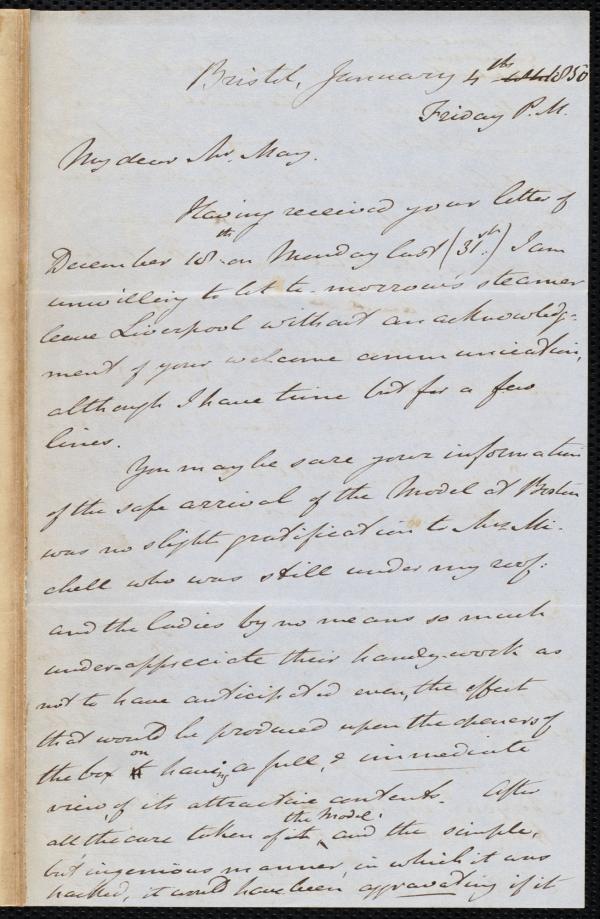 Bristol, January 4th 1850
Friday P.M.
My dear Mr. May.
Having received your letter of
December 18th on Monday last (31st.) I am
unwilling to let to-morrow's steamer
leave Liverpool without an acknowledg-
ment of your welcome communication,
although I have time but for a few
lines.
You may be sure your information
of the safe arrival of the Model at Boston
was no slight gratification to Mrs Mi-
chell who was still under my roof:
and the ladies by no means so much
under-appreciate their handy-work as
not to have anticipated even, the effect
that would be produced upon the openers of
the box on having a full, & immediate
view, of its attractive contents. After
all the care taken of it, the Model! and the simple,
but ingenious manner, in which it was
packed, it would have been aggravating if it